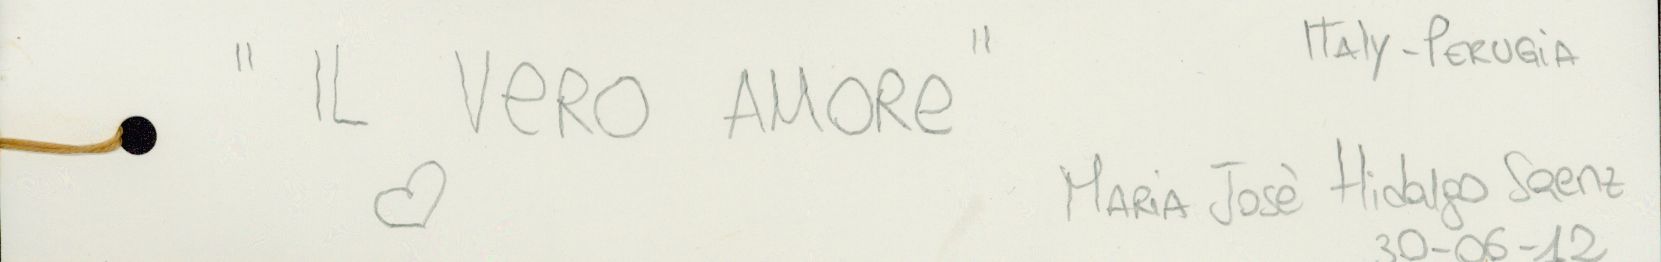 " IL VeRO AMORe "
ITAly - PERUGiA
MARiA Josè Hidalgo Saenz
30-06-12